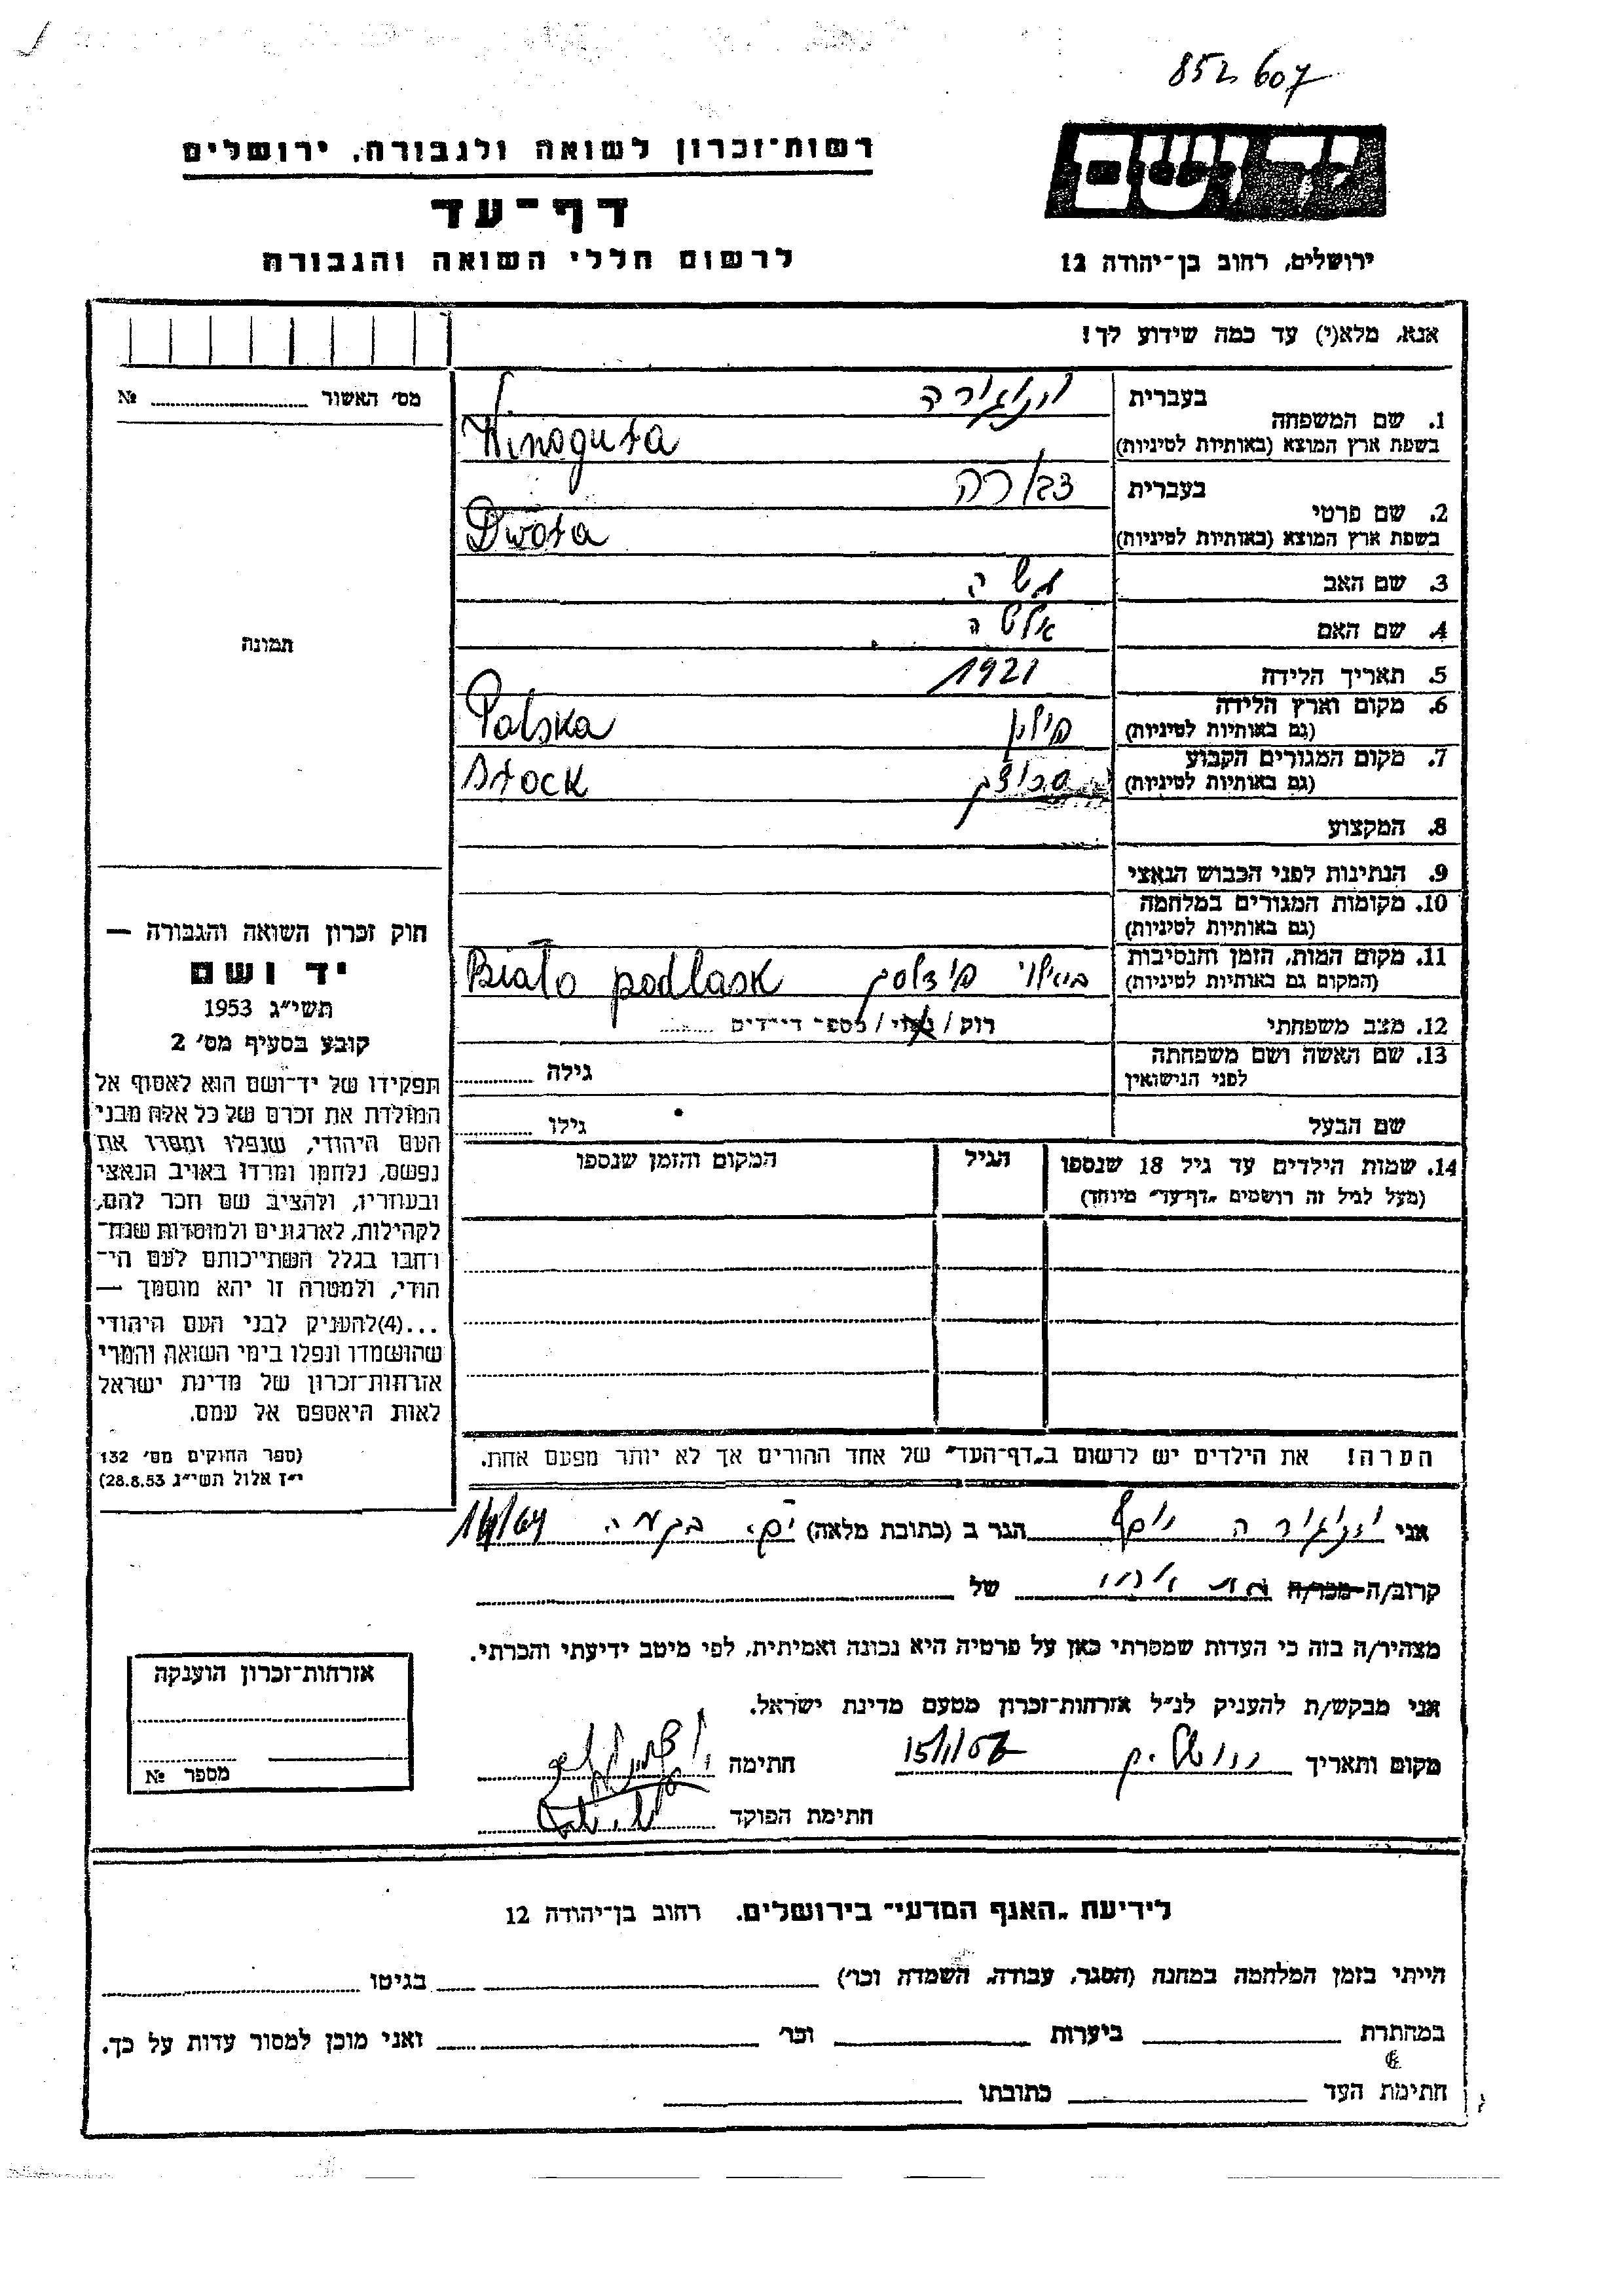 852607
יד ושם
רשות־זכרון לשואה ולגבורה, ירושלים
דף־עד
לרשום חללי השואה והגבורה
ירושלים, רחוב בן־יהודה 12
אנא, מלא(י) עד כמה שידוע לך!
מס׳ האשור № 
תמונה
1. שם המשפחה
בעברית וינוגורה
בשפת ארץ המוצא (באותיות לטיניות) Winogura
2. שם פרטי
בעברית דבורה
בשפת ארץ המוצא (באותיות לטיניות) Dwora
3. שם האב משה
4. שם האם
5. תאריך הלידה 1921
6. מקום וארץ הלידה
(גם באותיות לטיניות) פולין Polska
7. מקום המגורים הקבוע
(גם באותיות לטיניות) סטוצק Stock
8. המקצוע
9. הנתינות לפני הכבוש הנאצי
10. מקומות המגורים במלחמה
(גם באותיות לטיניות)
11. מקום המות, הזמן והנסיבות
(המקום גם באותיות לטיניות) Biało podlask
12. מצב משפחתי רוק/ נשוי/ מספר ילדים
13. שם האשה ושם משפחתה
לפני הנישואין גילה
שם הבעל גילו
14. שמות הילדים עד גיל 18 שנספו הגיל המקום והזמן שנספו
(מעל לגיל זה רושמים „דף־עד״ מיוחד)
הערה! את הילדים יש לרשום ב„דף־העד״ של אחד ההורים אך לא יותר מפעם אחת.
חוק זכרון השואה והגבורה —
יד ושם
תשי״ג 1953
קובע בסעיף מס׳ 2
תפקידו של יד־ושם הוא לאסוף אל
המולדת את זכרם של כל אלה מבני
העם היהודי, שנפלו ומסרו את
נפשם, נלחמו ומרדו באויב הנאצי
ובעוזריו, ולהציב שם וזכר להם,
לקהילות, לארגונים ולמוסדות שנח־
רבו בגלל השתייכותם לעם הי־
הודי, ולמטרה זו יהא מוסמך —
...(4)להעניק לבני העם היהודי
שהושמדו ונפלו בימי השואה והמרי
אזרחות־זכרון של מדינת ישראל
לאות היאספם אל עמם.
(ספר החוקים מס׳ 132
י״ז אלול תשי״ג 28.8.53)
אני וינוגורה יוסף הגר ב (כתובת מלאה)
קרוב/ה מכר/ה של
מצהיר/ה בזה כי העדות שמסרתי כאן על פרטיה היא נכונה ואמיתית, לפי מיטב ידיעתי והכרתי.
אני מבקש/ת להעניק לנ״ל אזרחות־זכרון מטעם מדינת ישראל.
מקום ותאריך ירושלים חתימה
חתימת הפוקד
אזרחות־זכרון הוענקה
מספר №
לידיעת „האגף המדעי״ בירושלים, רחוב בן־יהודה 12
הייתי בזמן המלחמה במחנה (הסגר, עבודה, השמדה וכו׳) בגיטו
במחתרת ביערות וכו׳ ואני מוכן למסור עדות על כך.
חתימת העד כתובתו